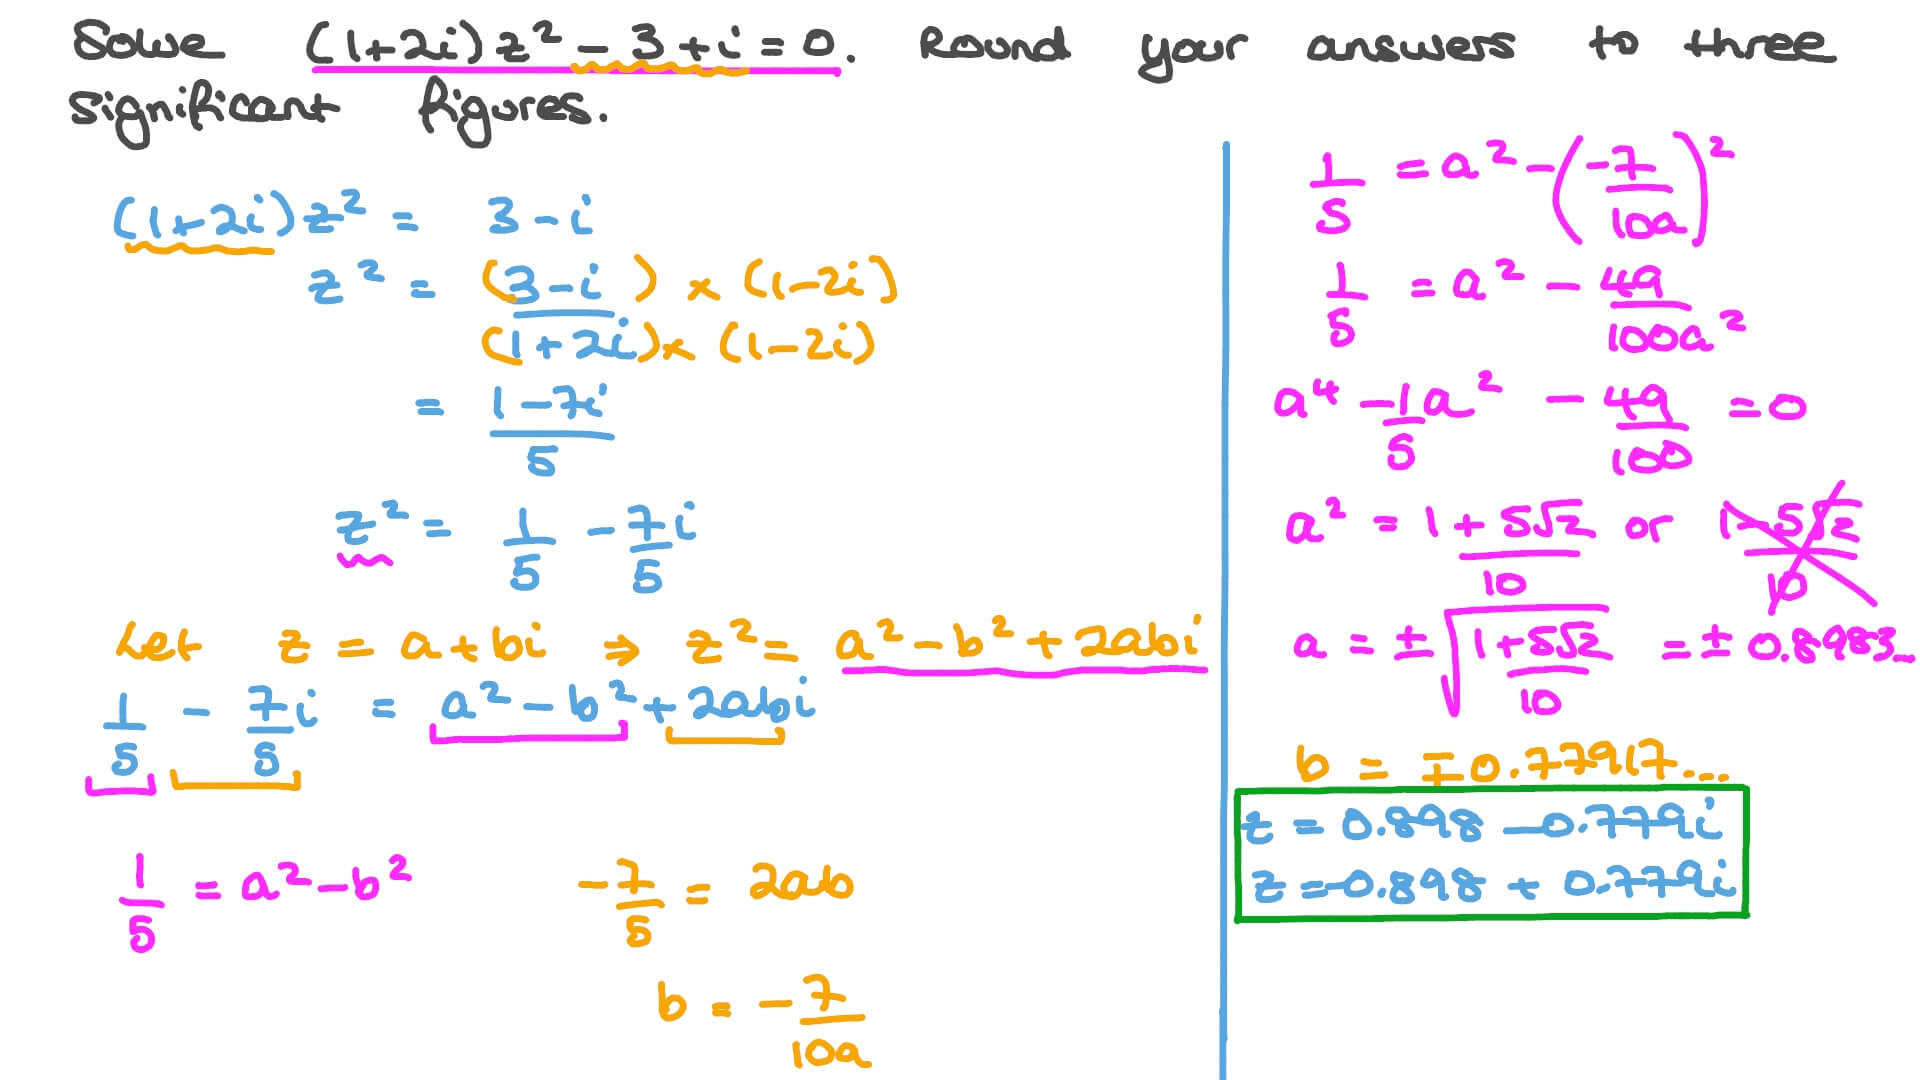 Solve (1+2i)z² - 3 + i = 0. Round your answers to three
significant figures.
(1+2i)z² = 3-i
z² = (3-i) × (1-2i)
(1+2i) × (1-2i)
= 1-7i
5
z² = 1/5 - 7/5 i
Let z = a + bi ⇒ z² = a² - b² + 2abi
1/5 - 7/5 i = a² - b² + 2abi
1/5 = a² - b²
-7/5 = 2ab
b = -7/10a
1/5 = a² - (-7/10a)²
1/5 = a² - 49/100a²
a⁴ - 1/5 a² - 49/100 = 0
a² = 1+5√2 or 1-5√2
10 10
a = ± √(1+5√2 / 10) = ± 0.8983...
b = ∓0.77917...
z = 0.898 - 0.779i
z = -0.898 + 0.779i